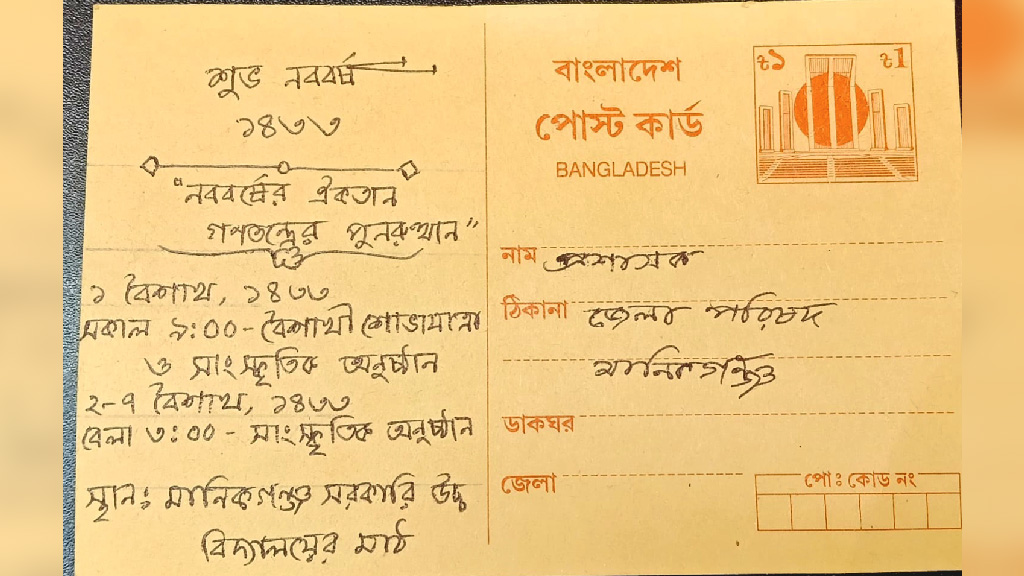 শুভ নববর্ষ
১৪৩৩
"নববর্ষের ঐকতান
গণতন্ত্রের পুনরুত্থান"
১ বৈশাখ, ১৪৩৩
সকাল ৯:০০ - বৈশাখী শোভাযাত্রা
ও সাংস্কৃতিক অনুষ্ঠান
২-৭ বৈশাখ, ১৪৩৩
বেলা ৩:০০ - সাংস্কৃতিক অনুষ্ঠান
স্থান: মানিকগঞ্জ সরকারি উচ্চ
বিদ্যালয়ের মাঠ
বাংলাদেশ
পোস্ট কার্ড
BANGLADESH
৳১ ৳1
নাম প্রশাসক
ঠিকানা জেলা পরিষদ
মানিকগঞ্জ
ডাকঘর
জেলা
পো: কোড নং